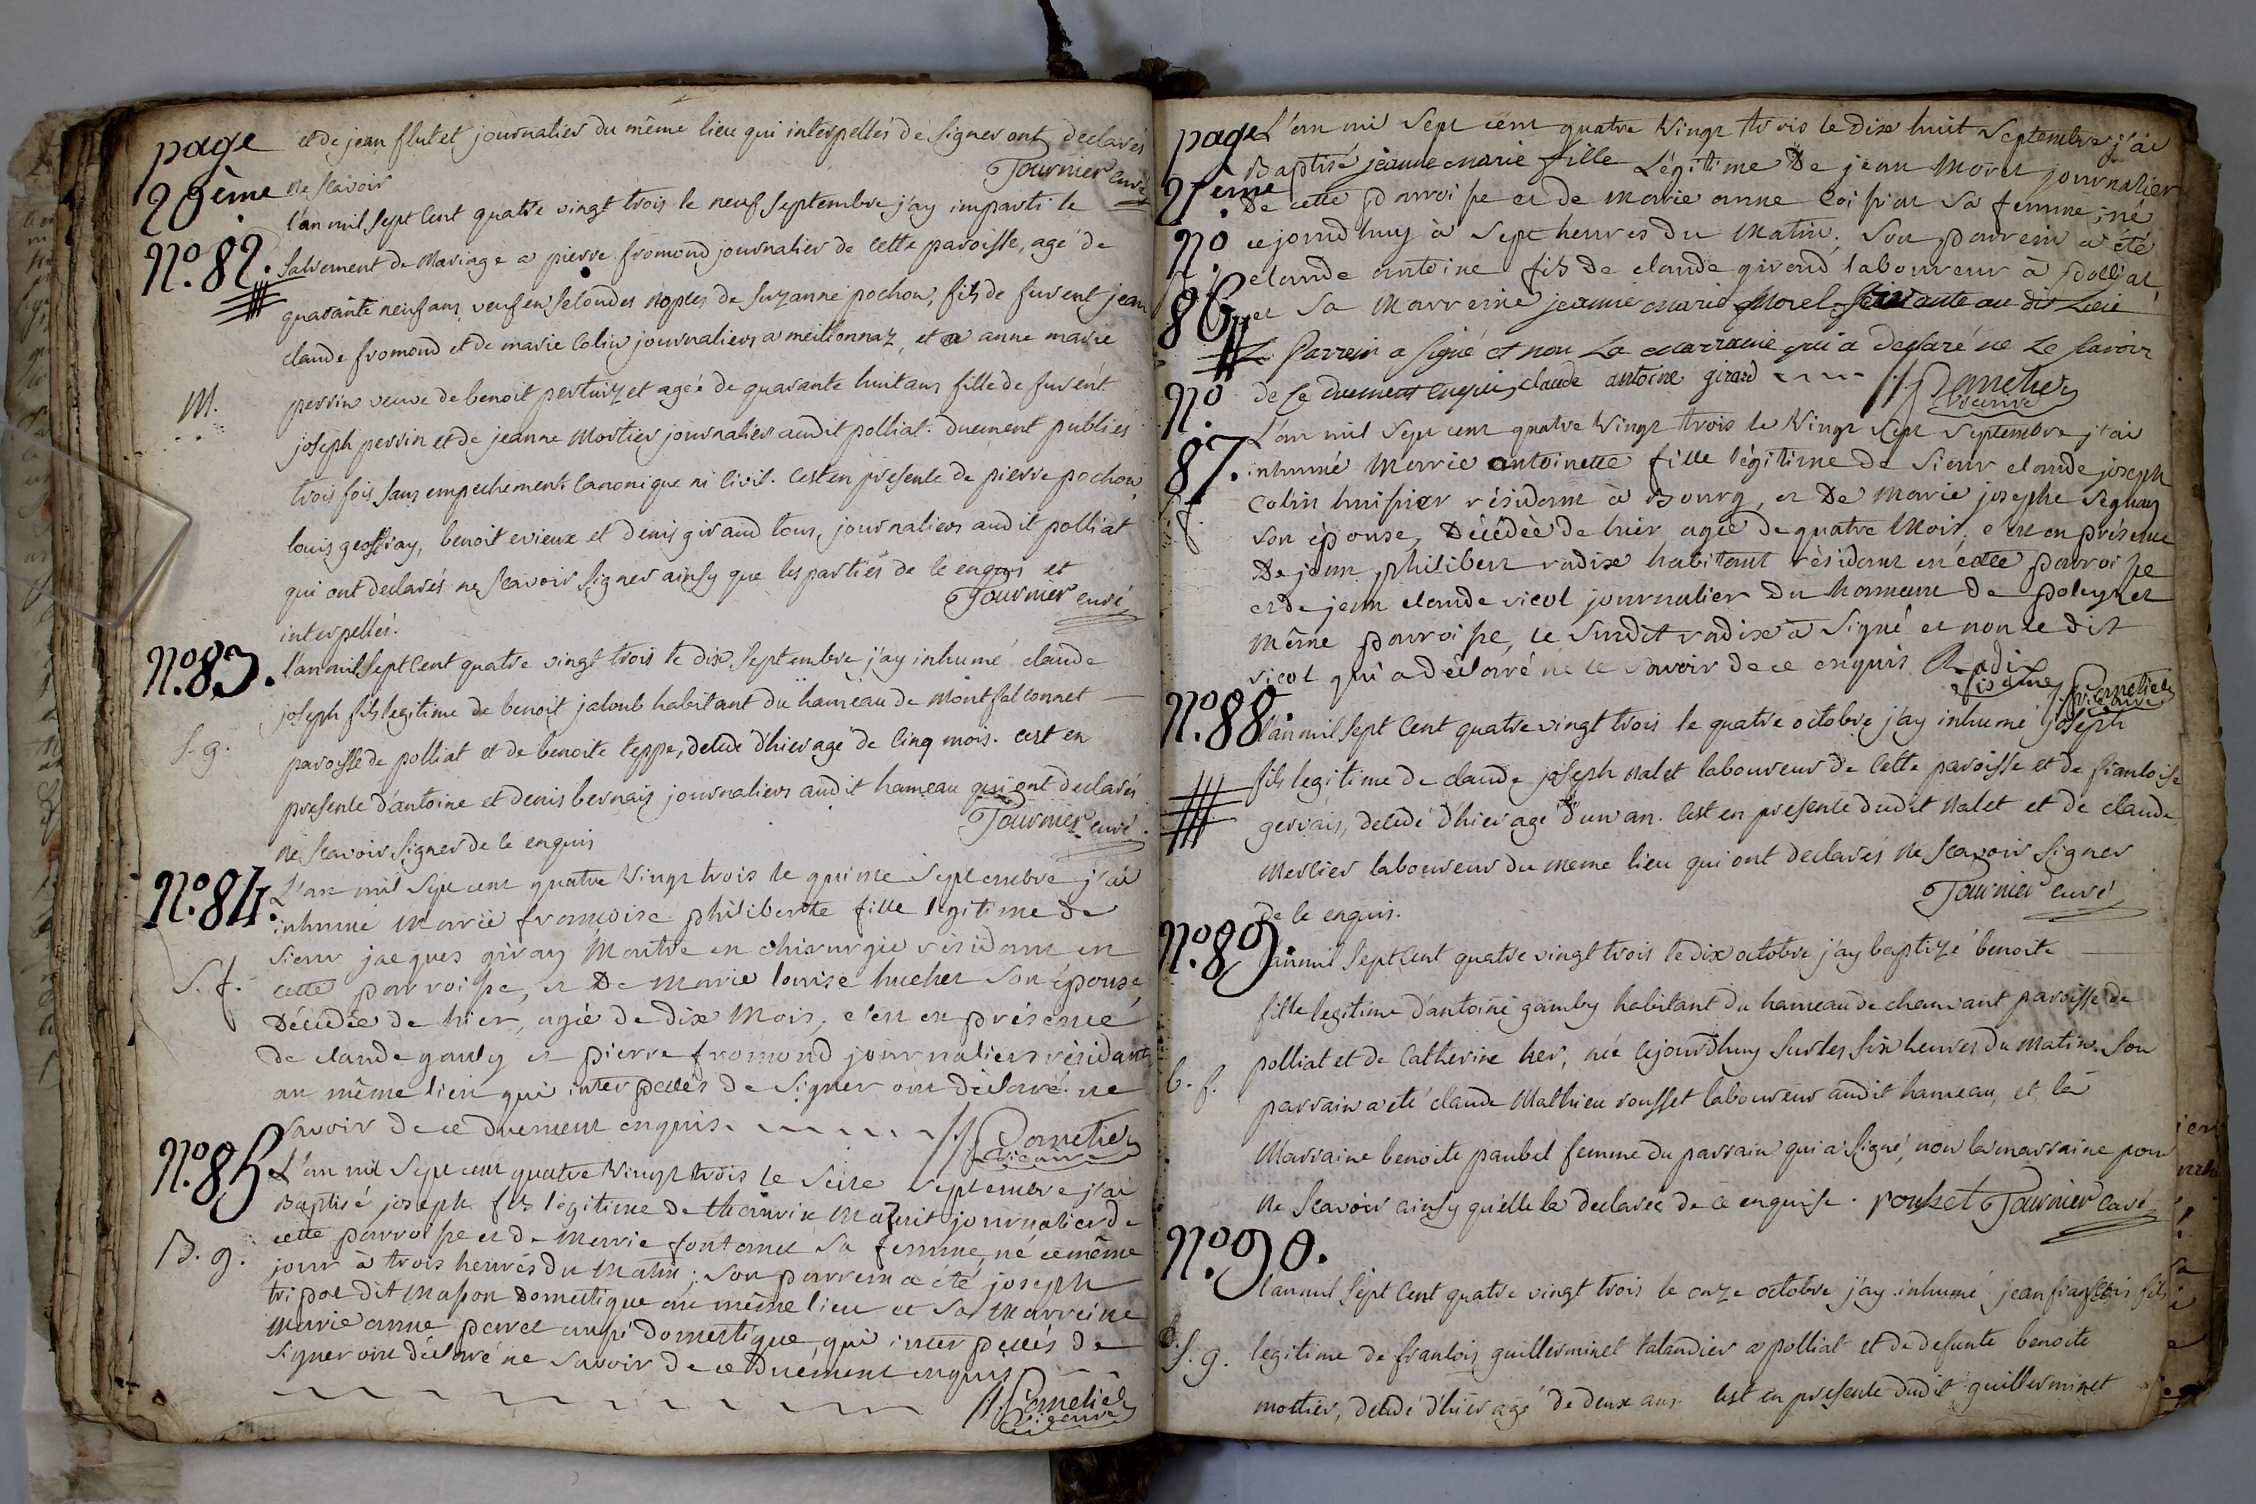 page
29ème
et de jean flutet journalier du même lieu qui interpellés de signer ont declarés
ne scavoir Tournier curé
N.º 82.
l'an mil sept cent quatre vingt trois le neuf septembre j'ay imparti le
sacrement de mariage a pierre fromond journalier de cette paroisse, agé de
quarante neuf ans, veuf en secondes noples de suzanne pochon, fils de furent jean
claude fromond et de marie colin journaliers a meillonnaz, et a anne marie
M.
perrin veuve de benoit pertuizet agée de quarante huit ans fille de furent
joseph perrin et de jeanne mortier journalier audit polliat. duement publiés
trois fois sans empechement canonique ni civil. c'est en presence de pierre pochon,
louis geoffray, benoit evieux et denis giraud tous, journaliers audit polliat
qui ont declarés ne scavoir signer ainsy que les parties de ce enquis et
interpellés. Tournier curé
N.º 83.
l'an mil sept cent quatre vingt trois le dix septembre j'ay inhumé claude
joseph fils legitime de benoit jaloub habitant du hameau de montfalconnet
s. g.
paroisse de polliat et de benoite teppe, decedé d'hier agé de cinq mois. c'est en
presence d'antoine et denis bernais journaliers audit hameau qui ont declarés
ne scavoir signer de ce enquis Tournier curé.
N.º 84.
L'an mil sept cent quatre vingt trois le quinze septembre j'ai
inhumé marie françoise philiberte fille légitime de
sieur jacques giray maitre en chirurgie résidant en
S. f.
cette parroisse, et de marie louise huchet son épouse,
décédée de hier, agée de dix mois, c'est en présence
de claude gauly et pierre fromond journaliers résidants
au même lieu qui interpellés de signer ont déclaré ne
savoir de ce duement enquis. Cornetier
vicaire
N.º 85
L'an mil sept cent quatre vingt trois le seize septembre j'ai
Baptisé joseph fils légitime de thonrix mazuit journalier de
cette parroisse et de marie fontanel sa femme, né ce même
B. g.
jour à trois heures du matin; son parrein a été joseph
tripoz dit mason domestique au même lieu et sa marreine
marie anne parel aussi domestique, qui interpellés de
signer ont déclaré ne savoir de ce duement enquis
Cornetier
vicaire
page
2[?]ème
L'an mil sept cent quatre vingt trois le dix huit septembre j'ai
Baptisé jeanne marie fille légitime de jean morel journalier
de cette parroisse et de marie anne loisiat sa femme, né
Nº
86
cejourdhuy à sept heures du matin; son parrein a été
claude antoine fils de claude girand laboureur à polliat,
et sa marreine jeanne marie Morel servante au dit lieu
Le parrein a signé et non la marraine qui a declaré ne le scavoir
de ce duement enquis claude antoine girard Cornetier
vicaire
Nº
87.
L'an mil sept cent quatre vingt trois le vingt sept septembre j'ai
inhumé marie antoinette fille légitime de sieur claude joseph
S. f.
colin huissier résidant à Bourg, et de marie josephe segnay
son épouse, décédée de hier, agée de quatre mois, c'est en présence
de jean philibert radix habitant résidant en cette parroisse
et de jean claude vicol journalier du hameau de poleyset
même parroisse, le susdit radix a signé et non le dit
vicol qui a déclaré ne le savoir de ce enquis Radix
Cornetier
vicaire
N.º 88
l'an mil sept cent quatre vingt trois le quatre octobre j'ay inhumé joseph
fils legitime de claude joseph nalet laboureur de cette paroisse et de francoise
gervais, decedé d'hier agé d'un an. c'est en presence dudit nalet et de claude
mercier laboureur du meme lieu qui ont declarés ne scavoir signer
de ce enquis. Tournier curé
N.º 89.
l'an mil sept cent quatre vingt trois le dix octobre j'ay baptizé benoite
fille legitime d'antoine gamby habitant du hameau de chamant paroisse de
b. f.
polliat et de catherine ver, née cejourdhuy sur les six heures du matin. son
parrain a eté claude mathieu rousset laboureur audit hameau, et la
marraine benoite paubel femme du parrain qui a signé, non la marraine pour
ne scavoir ainsy qu'elle la declaré de ce enquise. rousset Tournier curé
N.º 90.
l'an mil sept cent quatre vingt trois le onze octobre j'ay inhumé jean francois fils
s. g.
legitime de francois guillerminet taландier a polliat et de defunte benoite
mottier, decedé d'hier agé de deux ans. c'est en presence dudit guillerminet